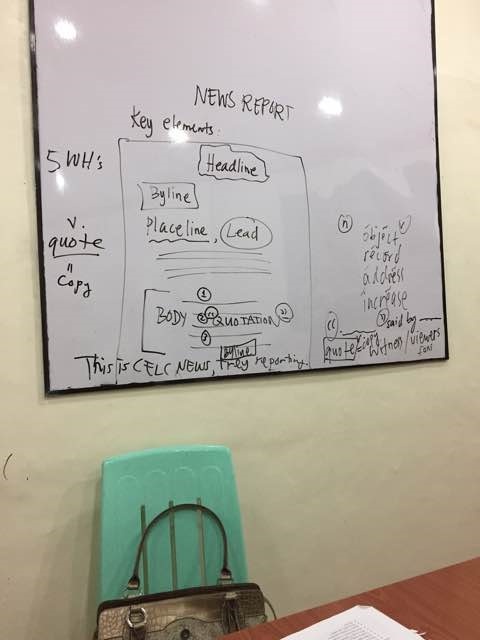 NEWS REPORT
Key elements:
5 WH's
Headline
Byline
Placeline, Lead
v.
quote
"
Copy
(n) (v)
object
record
address
increase
1
BODY 2 " QUOTATION "
3
Byline
This is CELC NEWS, Trey reporting.
said by
quote witness / viewers